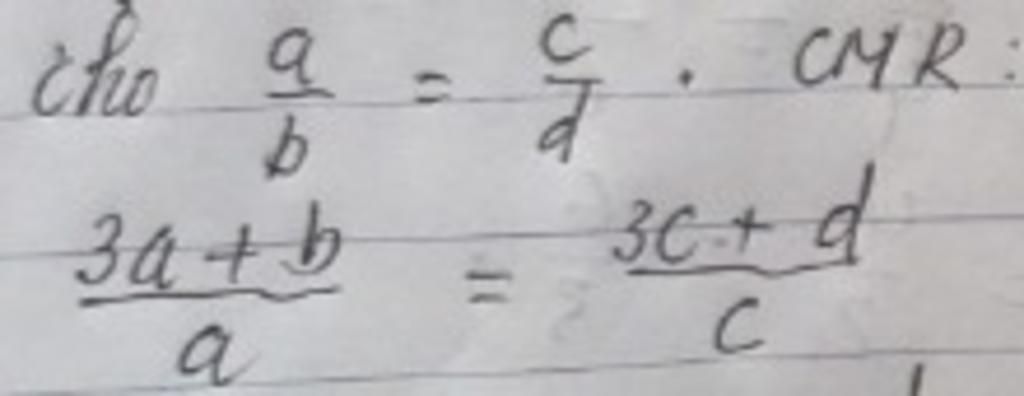 cho a/b = c/d . CMR :
3a + b / a = 3c + d / c